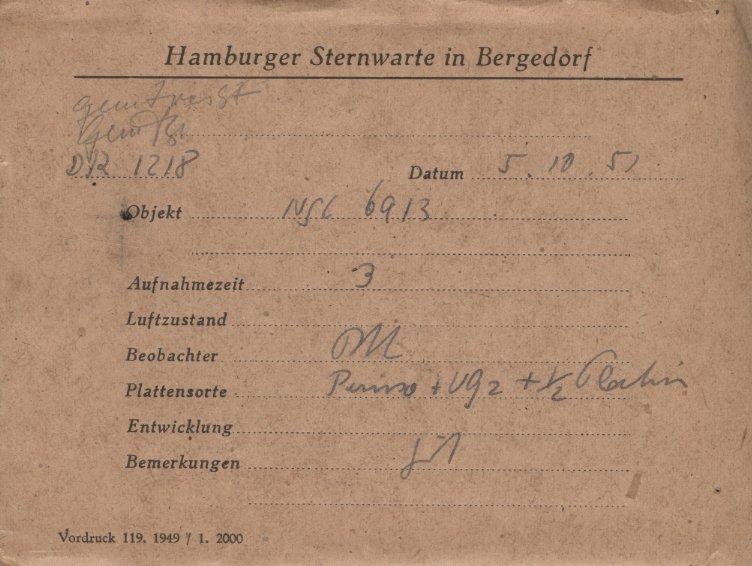 Hamburger Sternwarte in Bergedorf
DR 1218
Datum 5. 10. 51
Objekt NGC 6913
Aufnahmezeit 3
Luftzustand
Beobachter
Plattensorte + Vg2 + 1/2 Platin
Entwicklung
Bemerkungen
Vordruck 119. 1949 / 1. 2000